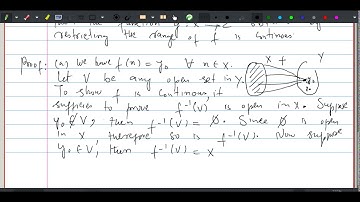 restricting the range of f is continous
Proof: (a) We have f(x) = y₀ ∀ x ∈ X. X f Y
Let V be any open set in Y. y₀
To show f is continous, it
suffices to prove f⁻¹(V) is open in X. Suppose
y₀ ∉ V, then f⁻¹(V) = ∅. Since ∅ is open
in X therefore so is f⁻¹(V). Now suppose
y₀ ∈ V, then f⁻¹(V) = X